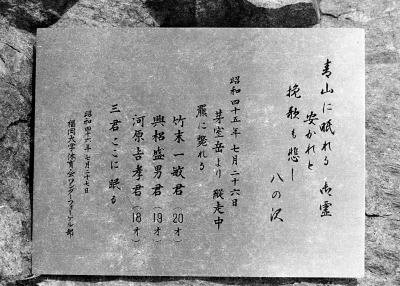 青山に眠れる 御霊
安かれと
挽歌も悲し
八の沢
昭和四十五年七月二十六日
芽室岳より 縦走中
羆に襲れる
竹末一敏君(20才)
興梠盛男君(19才)
河原吉孝君(18才)
三君ここに眠る
昭和四十六年七月二十七日
福岡大学体育会ワンダーフォーゲル部